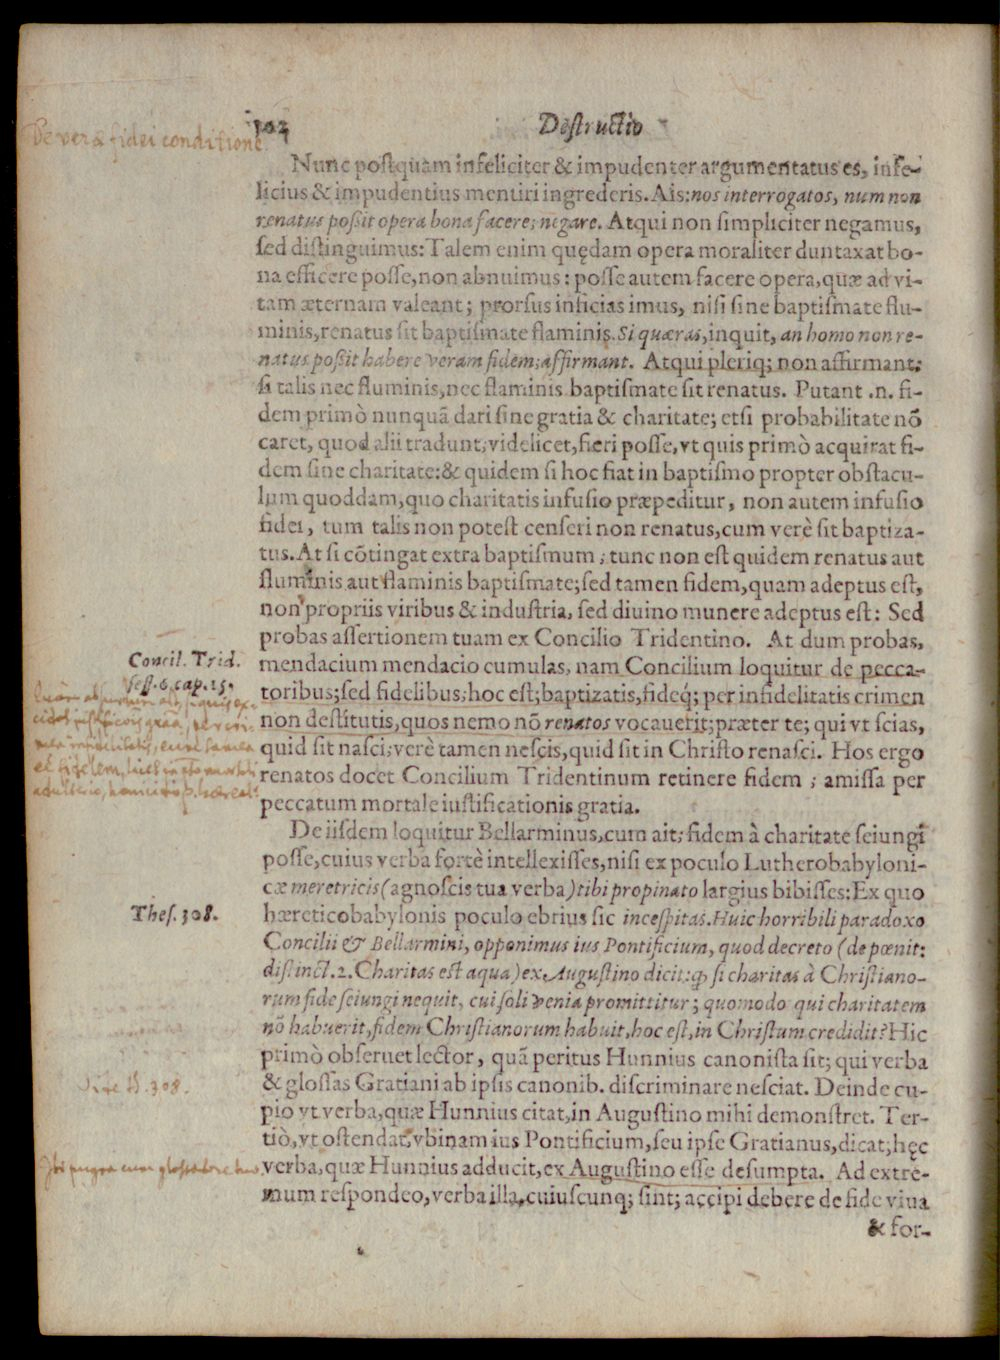 302 Destructio
De veræ fidei conditione.
Nunc postquam infeliciter & impudenter argumentatus es, infe-
licius & impudentius mentiri ingrederis. Ais: nos interrogatos, num non
renatus possit opera bona facere; negare. Atqui non simpliciter negamus,
sed distinguimus: Talem enim quędam opera moraliter duntaxat bo-
na efficere posse, non abnuimus: posse autem facere opera, quæ ad vi-
tam æternam valeant; prorsus inficias imus, nisi sine baptismate flu-
minis, renatus sit baptismate flaminis. Si quæras, inquit, an homo non re-
natus possit habere veram fidem; affirmant. Atqui pleriq; non affirmant;
si talis nec fluminis, nec flaminis baptismate sit renatus. Putant .n. fi-
dem primò nunquã dari sine gratia & charitate; etsi probabilitate nõ
caret, quod alii tradunt, videlicet, fieri posse, vt quis primò acquirat fi-
dem sine charitate: & quidem si hoc fiat in baptismo propter obstacu-
lum quoddam, quo charitatis infusio præpeditur, non autem infusio
fidei, tum talis non potest censeri non renatus, cum verè sit baptiza-
tus. At si cõtingat extra baptismum; tunc non est quidem renatus aut
fluminis aut flaminis baptismate; sed tamen fidem, quam adeptus est,
non propriis viribus & industria, sed diuino munere adeptus est: Sed
probas assertionem tuam ex Concilio Tridentino. At dum probas,
Concil. Trid.
sess. 6. cap. 15.
mendacium mendacio cumulas, nam Concilium loquitur de pecca-
toribus; sed fidelibus; hoc est; baptizatis, fideq́; per infidelitatis crimen
non destitutis, quos nemo nõ renatos vocauerit; præter te; qui vt scias,
quid sit nasci; verè tamen nescis, quid sit in Christo renasci. Hos ergo
renatos docet Concilium Tridentinum retinere fidem; amissa per
peccatum mortale iustificationis gratia.
De iisdem loquitur Bellarminus, cum ait; fidem à charitate seiungi
posse, cuius verba fortè intellexisses, nisi ex poculo Lutherobabyloni-
cæ meretricis (agnoscis tua verba) tibi propinato largius bibisses: Ex quo
Thes. 308.
hæreticobabylonis poculo ebrius sic incespitas. Huic horribili paradoxo
Concilii & Bellarmini, opponimus ius Pontificium, quod decreto (de pœnit:
distinct. 2. Charitas est aqua) ex Augustino dicit: ꝙ si charitas à Christiano-
rum fide seiungi nequit, cui soli venia promittitur; quomodo qui charitatem
nõ habuerit, fidem Christianorum habuit, hoc est, in Christum credidit? Hic
primò obseruet lector, quã peritus Hunnius canonista sit; qui verba
& glossas Gratiani ab ipsis canonib. discriminare nesciat. Deinde cu-
pio vt verba, quæ Hunnius citat, in Augustino mihi demonstret. Ter-
tiò, vt ostendat, vbinam ius Pontificium, seu ipse Gratianus, dicat; hęc
verba, quæ Hunnius adducit, ex Augustino esse desumpta. Ad extre-
mum respondeo, verba illa, cuiuscunq; sint; accipi debere de fide viua
& for-